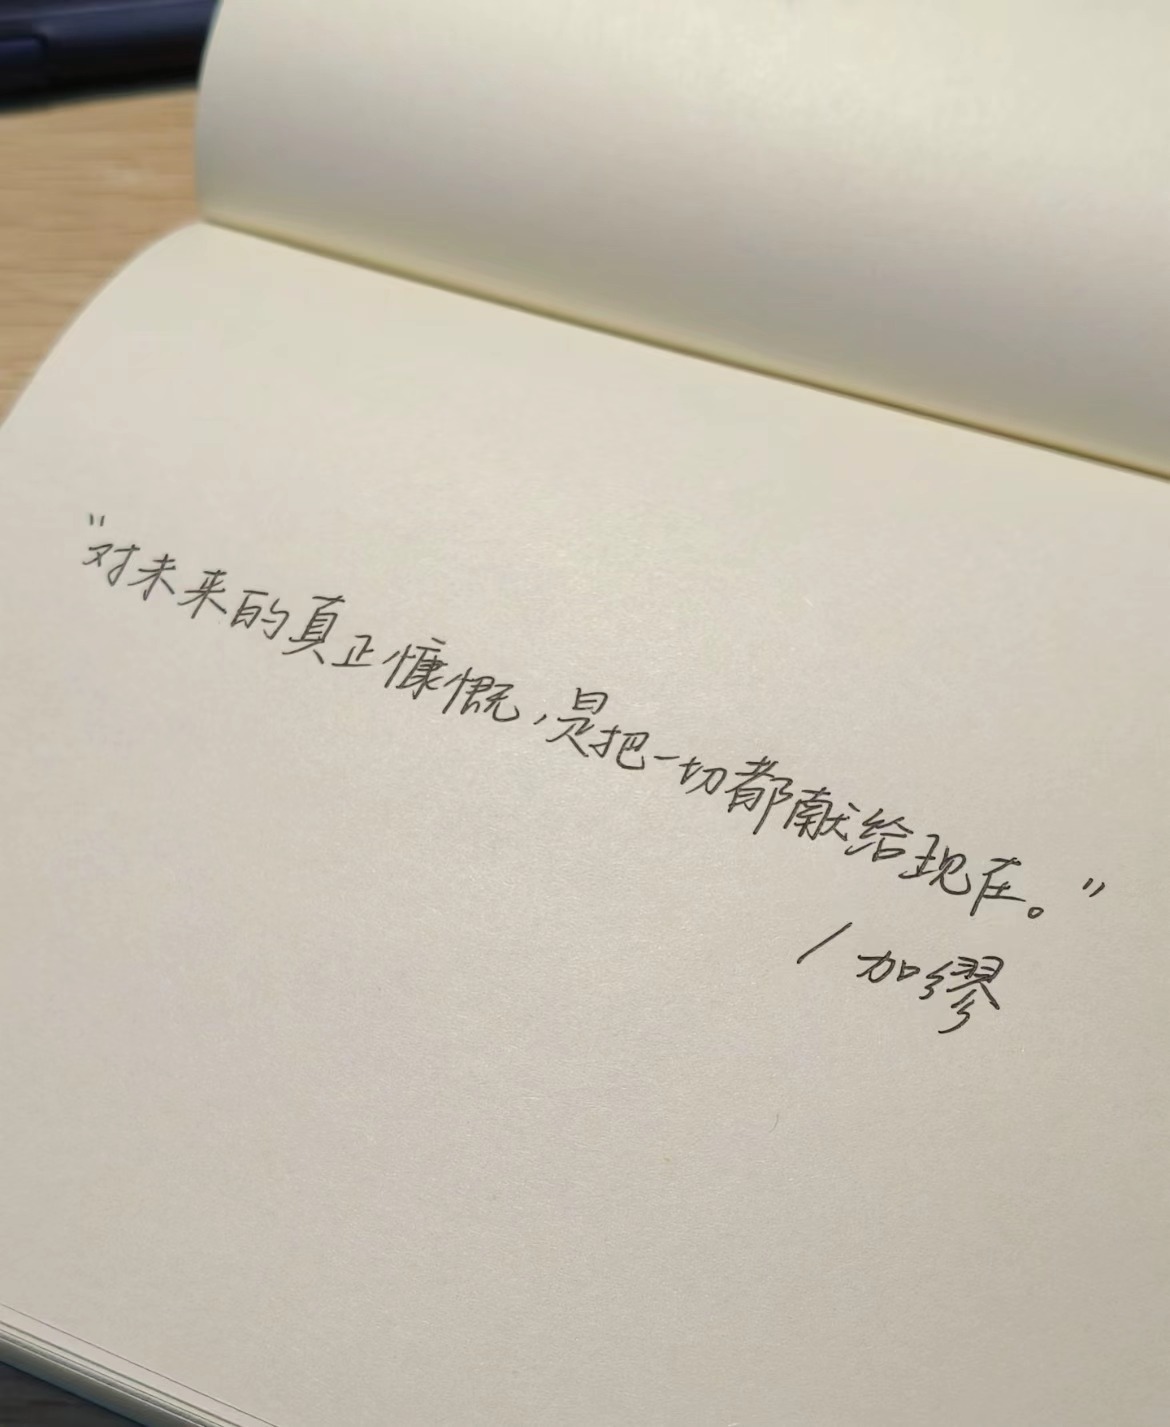 "对未来的真正慷慨，是把一切都献给现在。"
/ 加缪